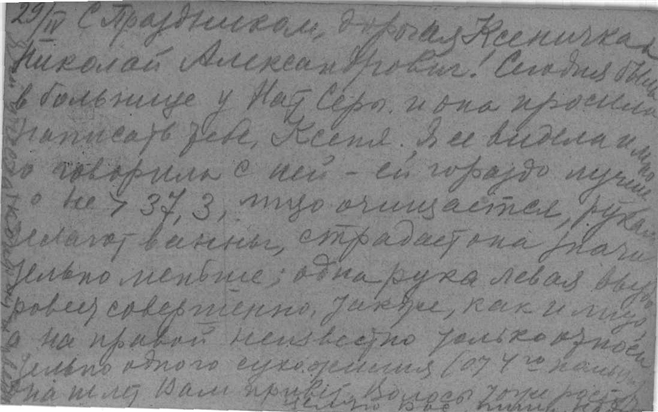 29/IV С Праздником, дорогая Ксеничка и
Николай Александрович! Сегодня была
в больнице у Нат. Серг. и она просила
написать тебе, Ксеня. Я ее видела и мно
го говорила с ней – ей гораздо лучше
t° не > 37,3, лицо очищается, рукам
делают ванны, страдает она значи
тельно меньше; одна рука левая выздо
ровеет совершенно, также, как и лицо,
а на правой неизвестно только относи
тельно одного сухожилия (от 4го пальца)
она шлет Вам привет. Волосы тоже растут
целую Вас